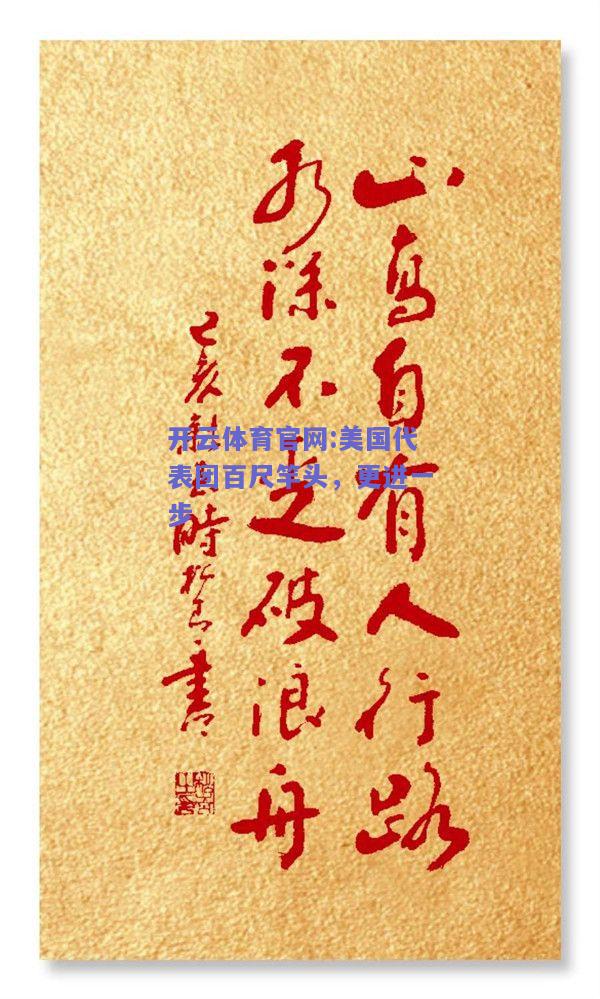 山高自有人行路
水深不乏破浪舟
己亥 時 書
开云体育官网:美国代
表团百尺竿头，更进一
步